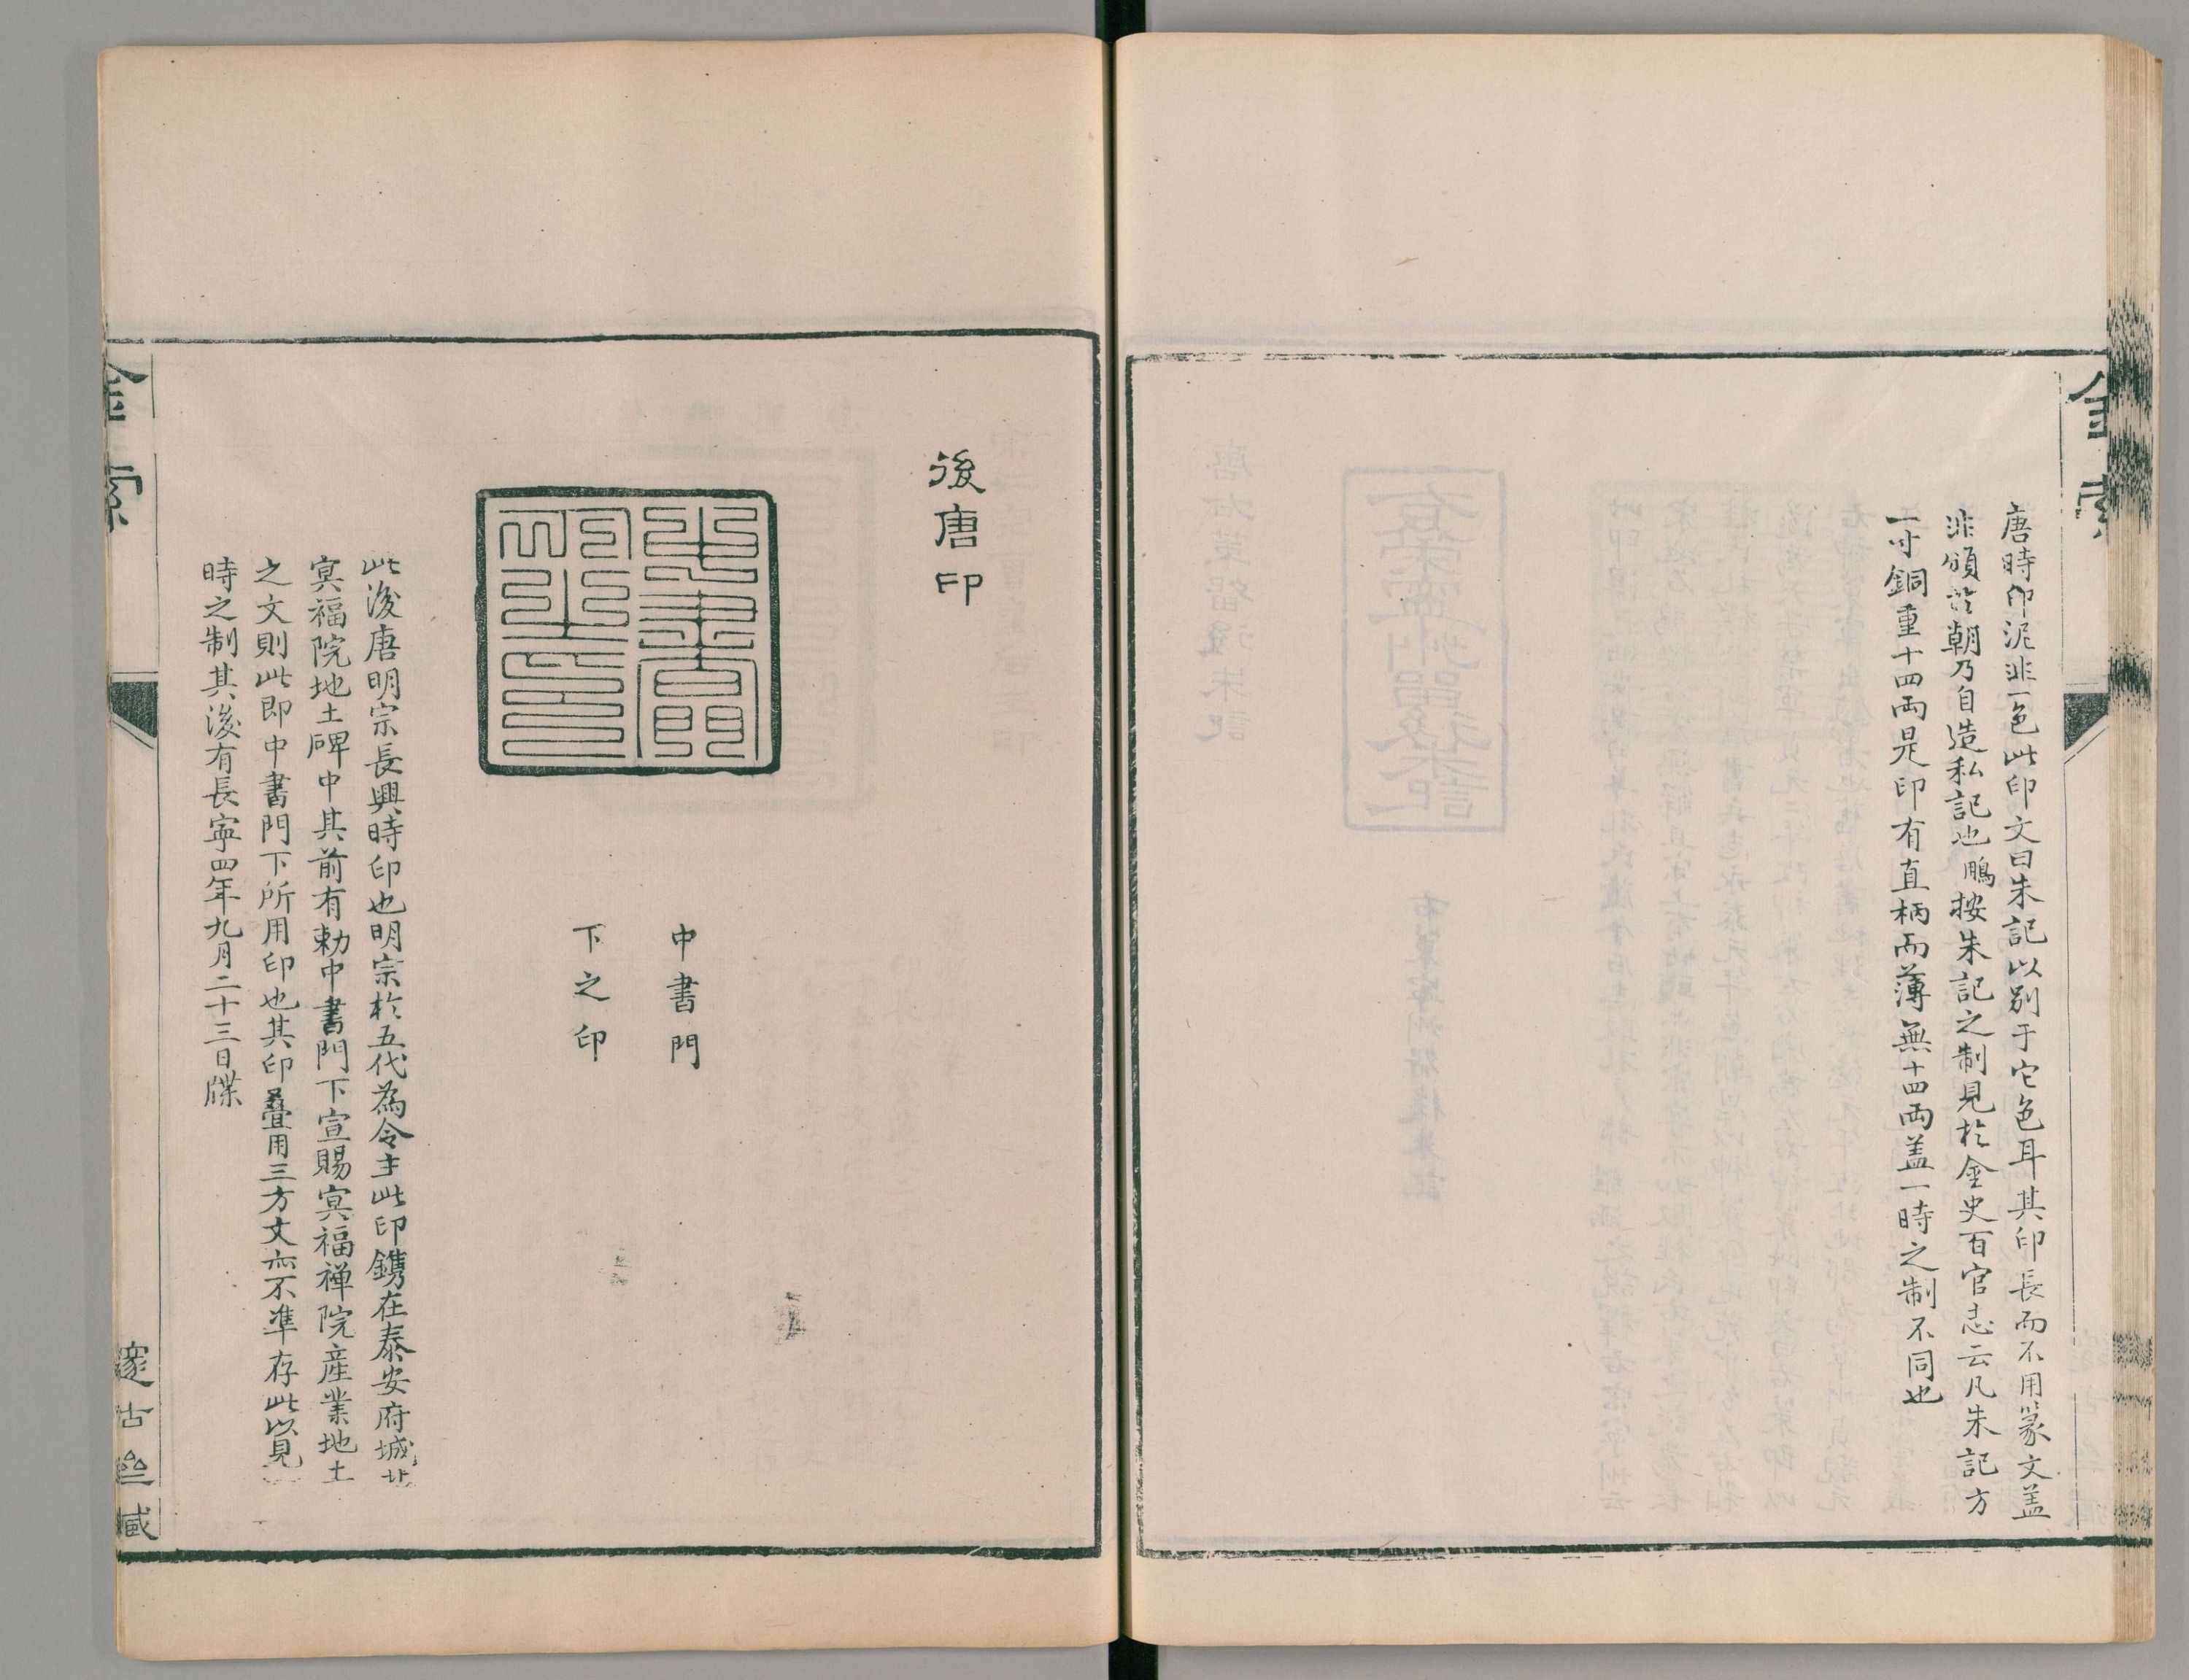 金索
唐時印泥非一色此印文曰朱記以别于它色耳其印長而不用篆文盖
非頒於朝乃自造私記也鵬按朱記之制見於金史百官志云凡朱記方
一寸銅重十四兩是印有直柄而薄無十四兩盖一時之制不同也
後唐印
中書門
下之印
中書門
下之印
此後唐明宗長興時印也明宗於五代為令主此印鐫在泰安府城北
冥福院地土碑中其前有勅中書門下宣賜冥福禅院産業地土
之文則此即中書門下所用印也其印疊用三方文亦不準存此以見
時之制其後有長寧四年九月二十三日牒
金索
邃古亝臧